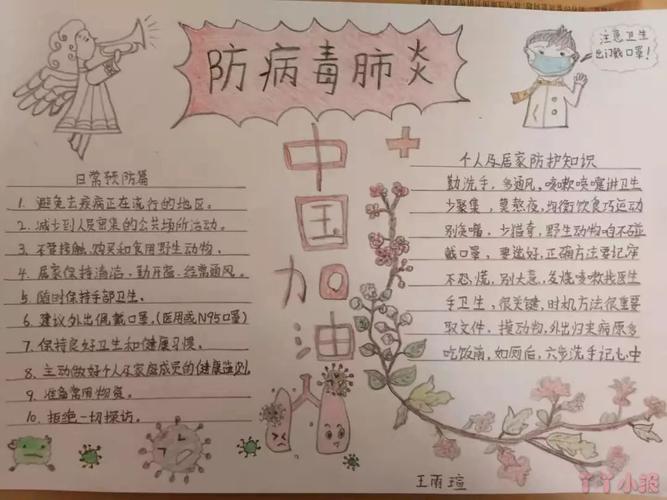 防病毒肺炎
注意卫生
出门戴口罩!
中国加油
日常预防篇
1. 避免去疾病正在流行的地区。
2. 减少到人员密集的公共场所活动。
3. 不要接触、购买和食用野生动物。
4. 居家保持清洁,勤开窗,经常通风。
5. 随时保持手部卫生。
6. 建议外出佩戴口罩。(医用或N95口罩)
7. 保持良好卫生和健康习惯。
8. 主动做好个人及家庭成员的健康监测。
9. 准备常用物资。
10. 拒绝一切探访。
个人及居家防护知识
勤洗手,多通风,咳嗽喷嚏讲卫生
少聚集,莫熬夜,均衡饮食巧运动
别逗猫,少猎奇,野生动物咱不碰
戴口罩,要选好,正确方法要记牢
不恐慌,别大意,发烧咳嗽找医生
手卫生,很关键,时机方法很重要
取文件,摸动物,外出归来病原多
吃饭前,如厕后,六步洗手记心中
王雨瑄
丫丫小报